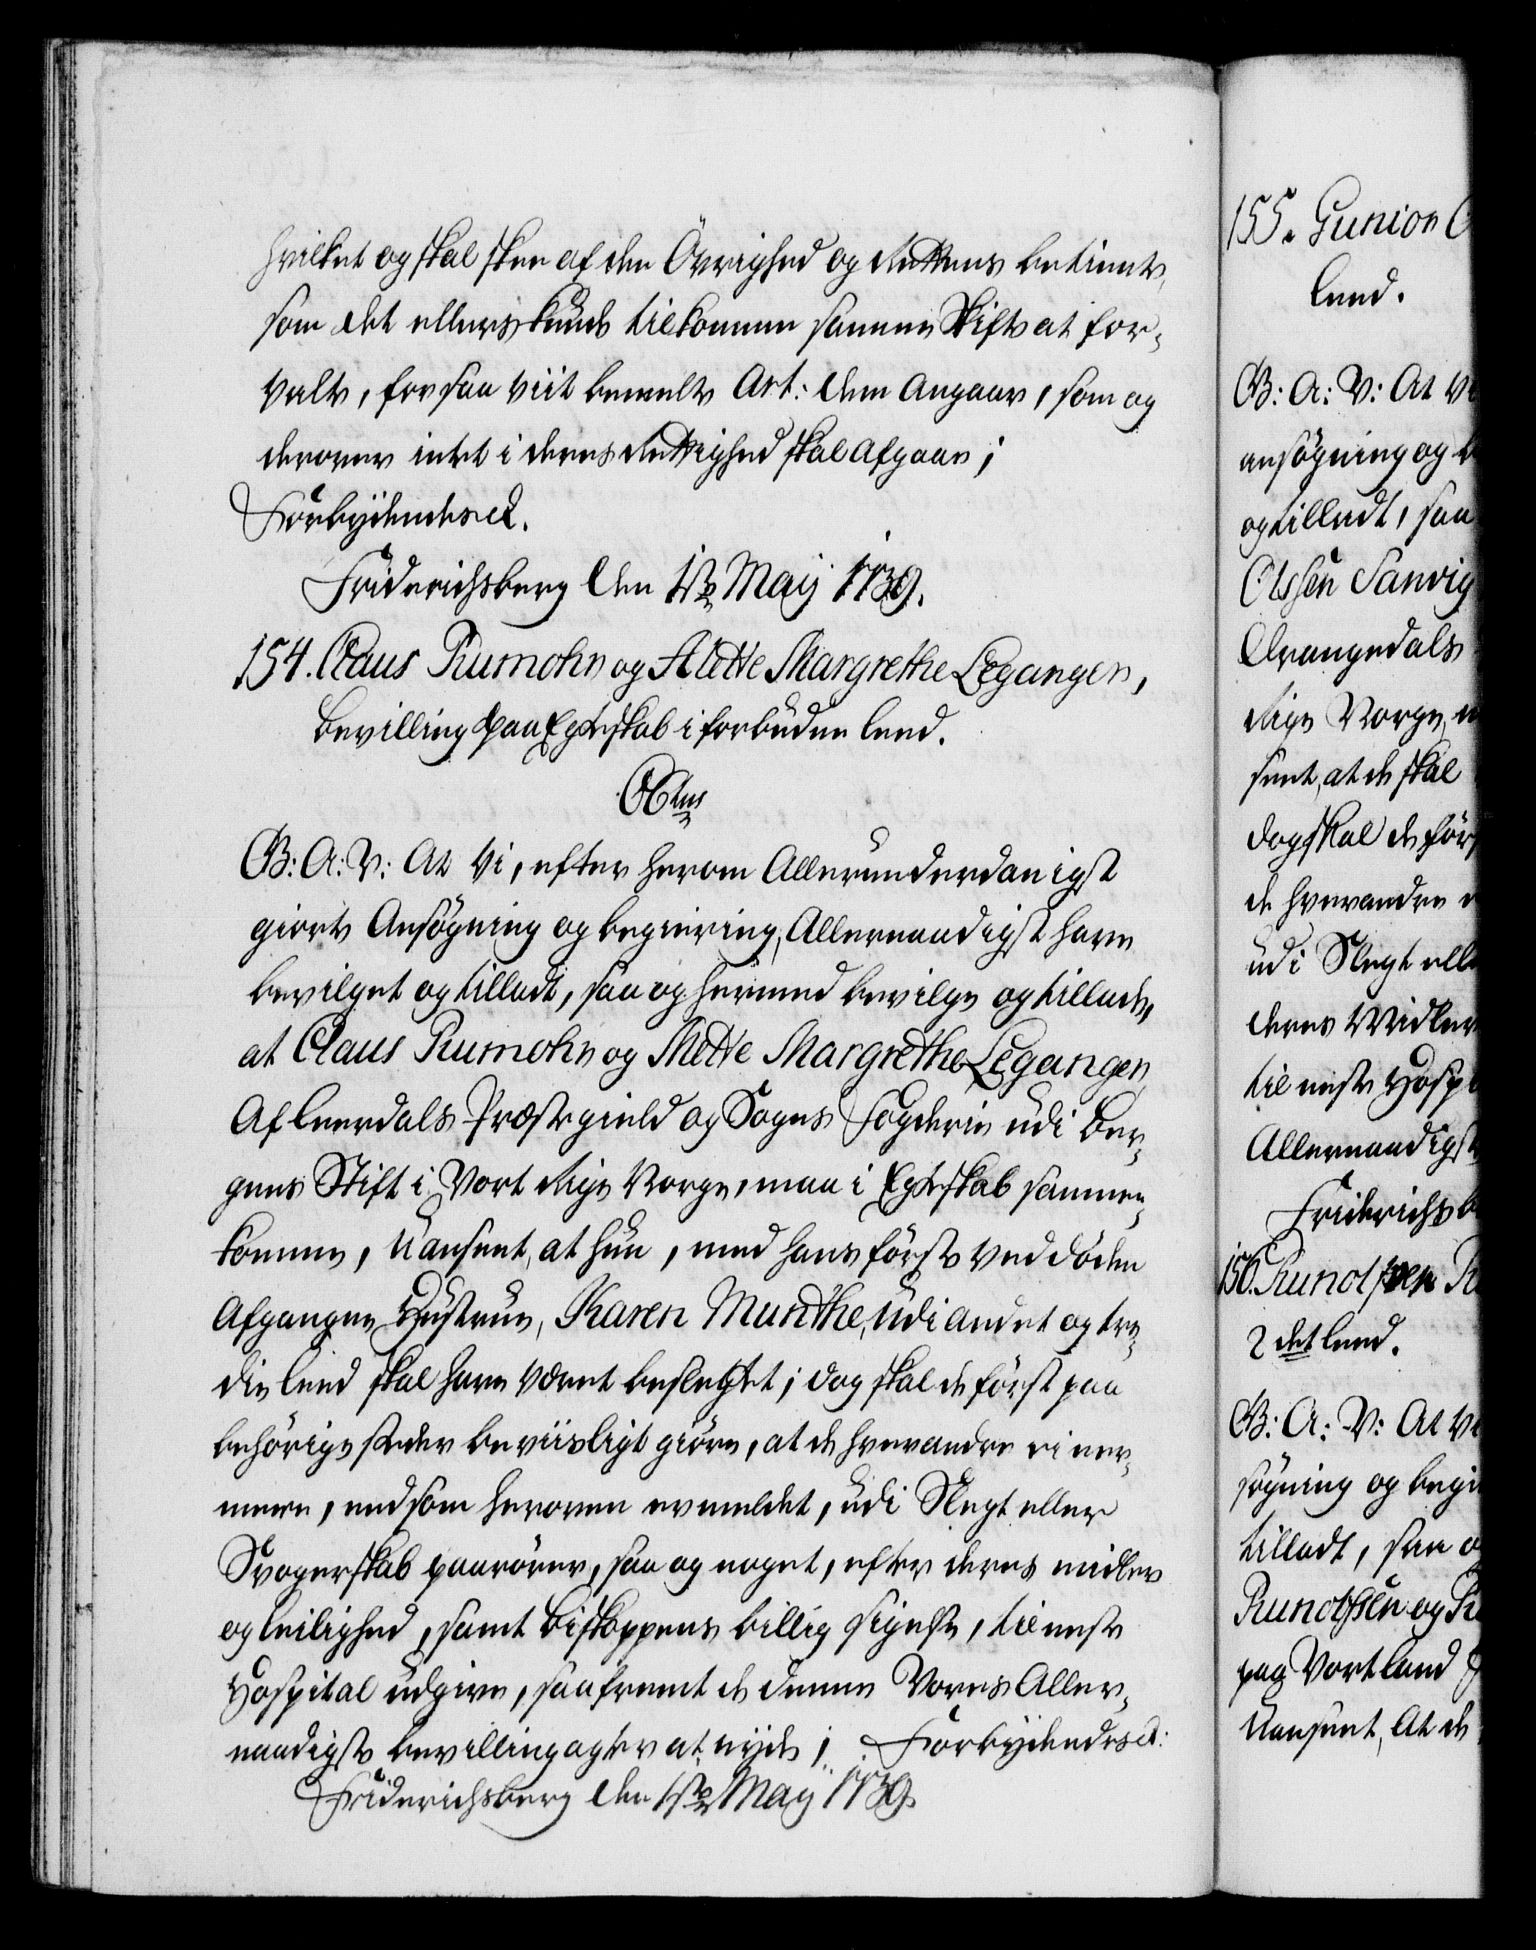 hvilket og skal skee af den Övrighed og Rettens betiente,
som det ellers kunde tilkomme samme Skifte at for-
valte, for saa viit bemelte Art: dem angaaer, som og
derover intet i deres Rettighed skal afgaae;
Forbydendes etc.
Friderichsberg den 1ste Maij 1739.
154. Claus Rumohr og Mette Margrethe Leganger,
bevilling paa Egteskab i forbuden leed.
C6tus
G: A: V: At Vi, efter herom Allerunderdanigst
giorte Ansögning og begiering, Allernaadigst have
bevilget og tilladt, saa og hermed bevilge og tillade,
at Claus Rumohr og Mette Margrethe Leganger,
Af Leerdals Præstegield og Sogns Fogderie udi Ber-
gens Stift i Vort Rige Norge, maa i Egteskab sammen-
komme, Uanseet, at hun, med hans förste ved döden
Afgangne Hustrue, Karen Munthe, udi andet og tre-
die leed skal have været beslegtet; dog skal de först paa
behörige steder beviisligt giöre, at de hverandre ei ner-
mere, end som heroven er meldet, udi Slegt eller
Svogerskab paarörer, saa og noget, efter deres midler
og leilighed, samt Biskoppens billig sigelse, til neste
Hospital udgive, saafremt de denne Vores Aller-
naadigste bevilling agter at nyde; Forbydendes etc:
Friderichsberg den 1ste Maij 1739.
155. Gunior
leed.
G: A: V: At Vi
ansögning og
og tilladt, saa
Olssen Sanvig
Drangedals
Rige Norge,
seet, at de skal
dog skal de först
de hverandre
udi Slegt eller
deres Midler
til neste Hospi
Allernaadigste
Friderichsb
156. Runolssen
2det leed.
G: A: V: At Vi
sögning og begi
tilladt, saa o
Runolssen og
paa Vort land
Uanseet, At de